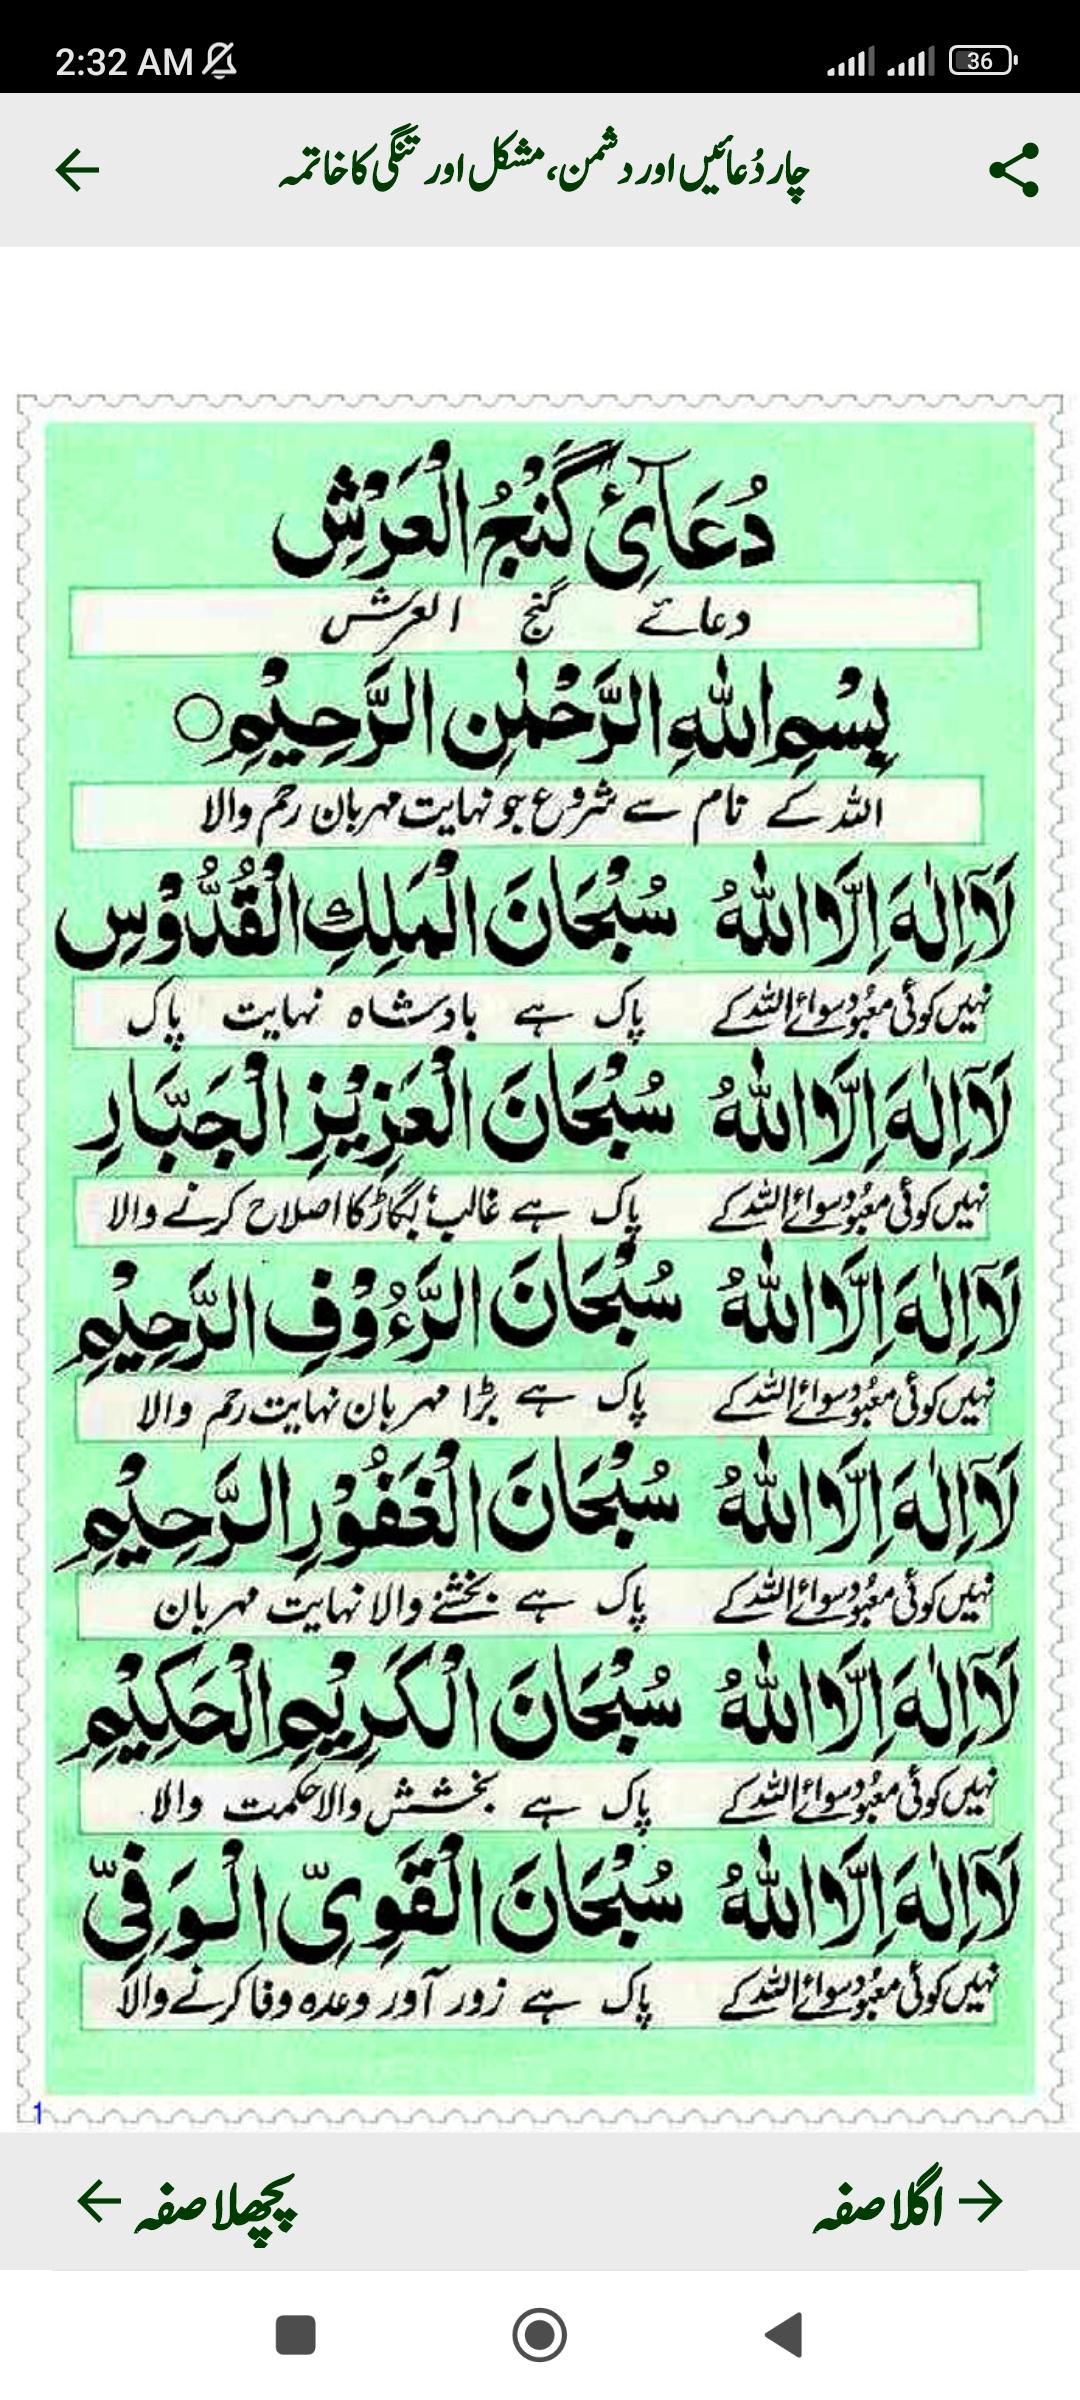 2:32 AM
36
چار دُعائیں اور دشمن، مشکل اور تنگی کا خاتمہ
دُعَآئِ گَنْجُ الْعَرْشِ
دعائے گنج العرش
بِسْمِ اللهِ الرَّحْمٰنِ الرَّحِيْمِ○
اللہ کے نام سے شروع جو نہایت مہربان رحم والا
لَآ اِلٰهَ اِلَّا اللهُ سُبْحَانَ الْمَلِكِ الْقُدُّوْسِ
نہیں کوئی معبود سوائے اللہ کے پاک ہے بادشاہ نہایت پاک
لَآ اِلٰهَ اِلَّا اللهُ سُبْحَانَ الْعَزِيْزِ الْجَبَّارِ
نہیں کوئی معبود سوائے اللہ کے پاک ہے غالب بگاڑ کا اصلاح کرنے والا
لَآ اِلٰهَ اِلَّا اللهُ سُبْحَانَ الرَّءُوْفِ الرَّحِيْمِ
نہیں کوئی معبود سوائے اللہ کے پاک ہے بڑا مہربان نہایت رحم والا
لَآ اِلٰهَ اِلَّا اللهُ سُبْحَانَ الْغَفُوْرِ الرَّحِيْمِ
نہیں کوئی معبود سوائے اللہ کے پاک ہے بخشنے والا نہایت مہربان
لَآ اِلٰهَ اِلَّا اللهُ سُبْحَانَ الْكَرِيْمِ الْحَكِيْمِ
نہیں کوئی معبود سوائے اللہ کے پاک ہے بخشش والا حکمت والا
لَآ اِلٰهَ اِلَّا اللهُ سُبْحَانَ الْقَوِيِّ الْوَفِيِّ
نہیں کوئی معبود سوائے اللہ کے پاک ہے زور آور وعدہ وفا کرنے والا
1
اگلا صفہ
پچھلا صفہ